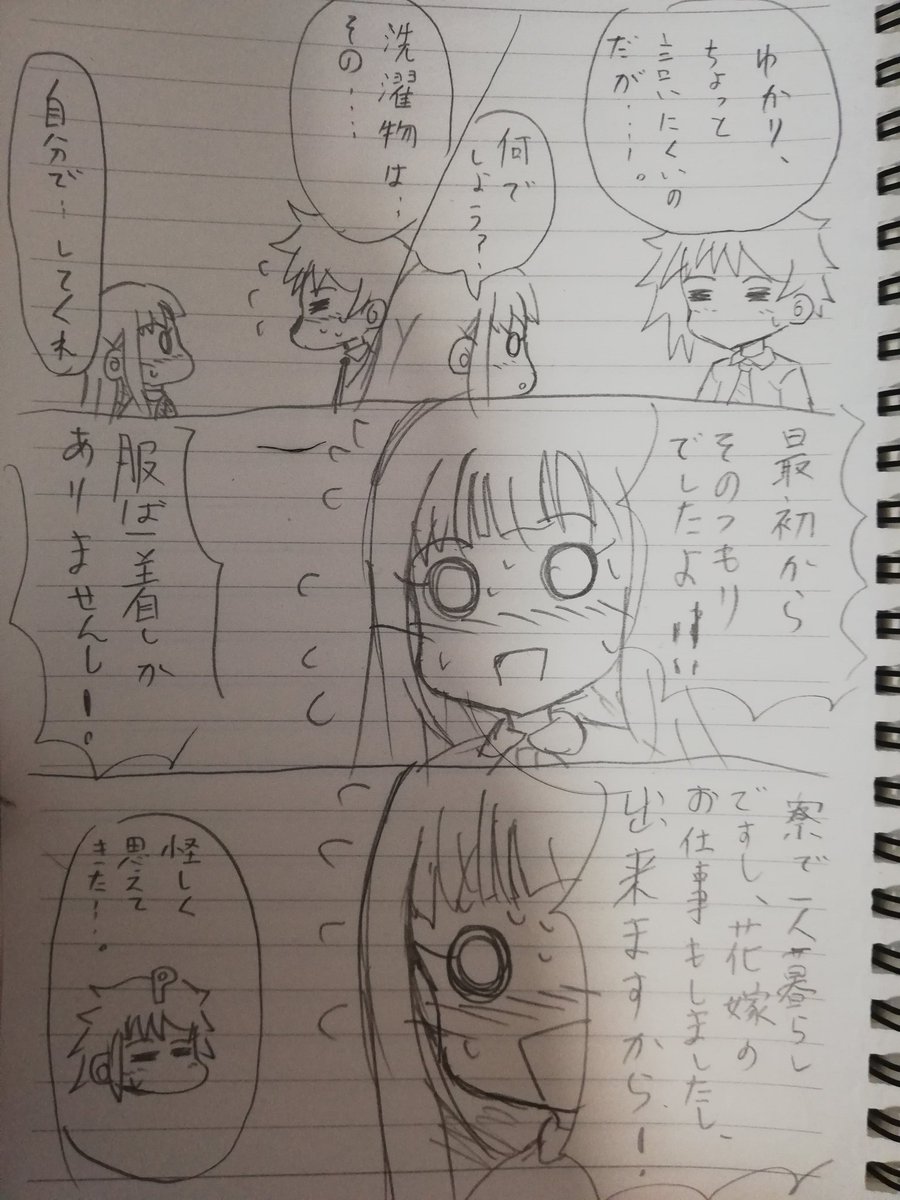 ゆかり、
ちょっと
言いにくいの
だが……。
何で
しょう?
洗濯物は…
その……
自分で…してくれ
最初から
そのつもり
でしたよ!!!
服は一着しか
ありませんしー。
寮で一人暮らし
ですし、花嫁の
お仕事もしましたし、
出来ますからー!
怪しく
思えて
きた…。